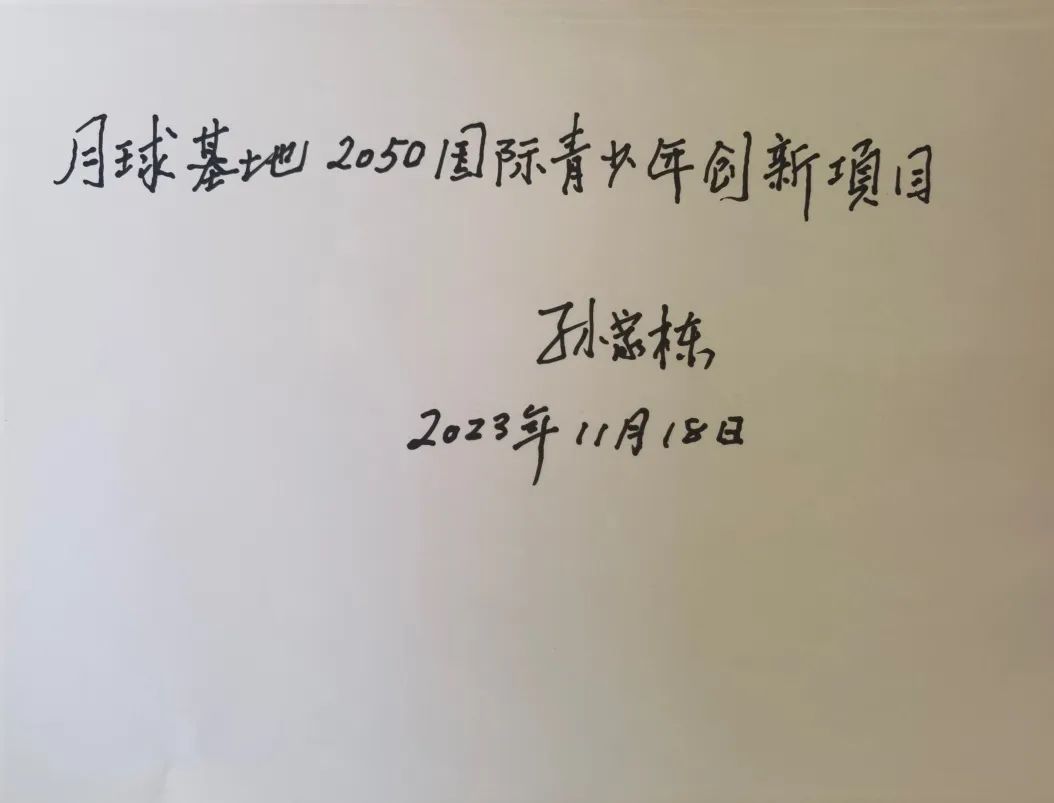 月球基地2050国际青少年创新項目
孙家栋
2023年11月18日